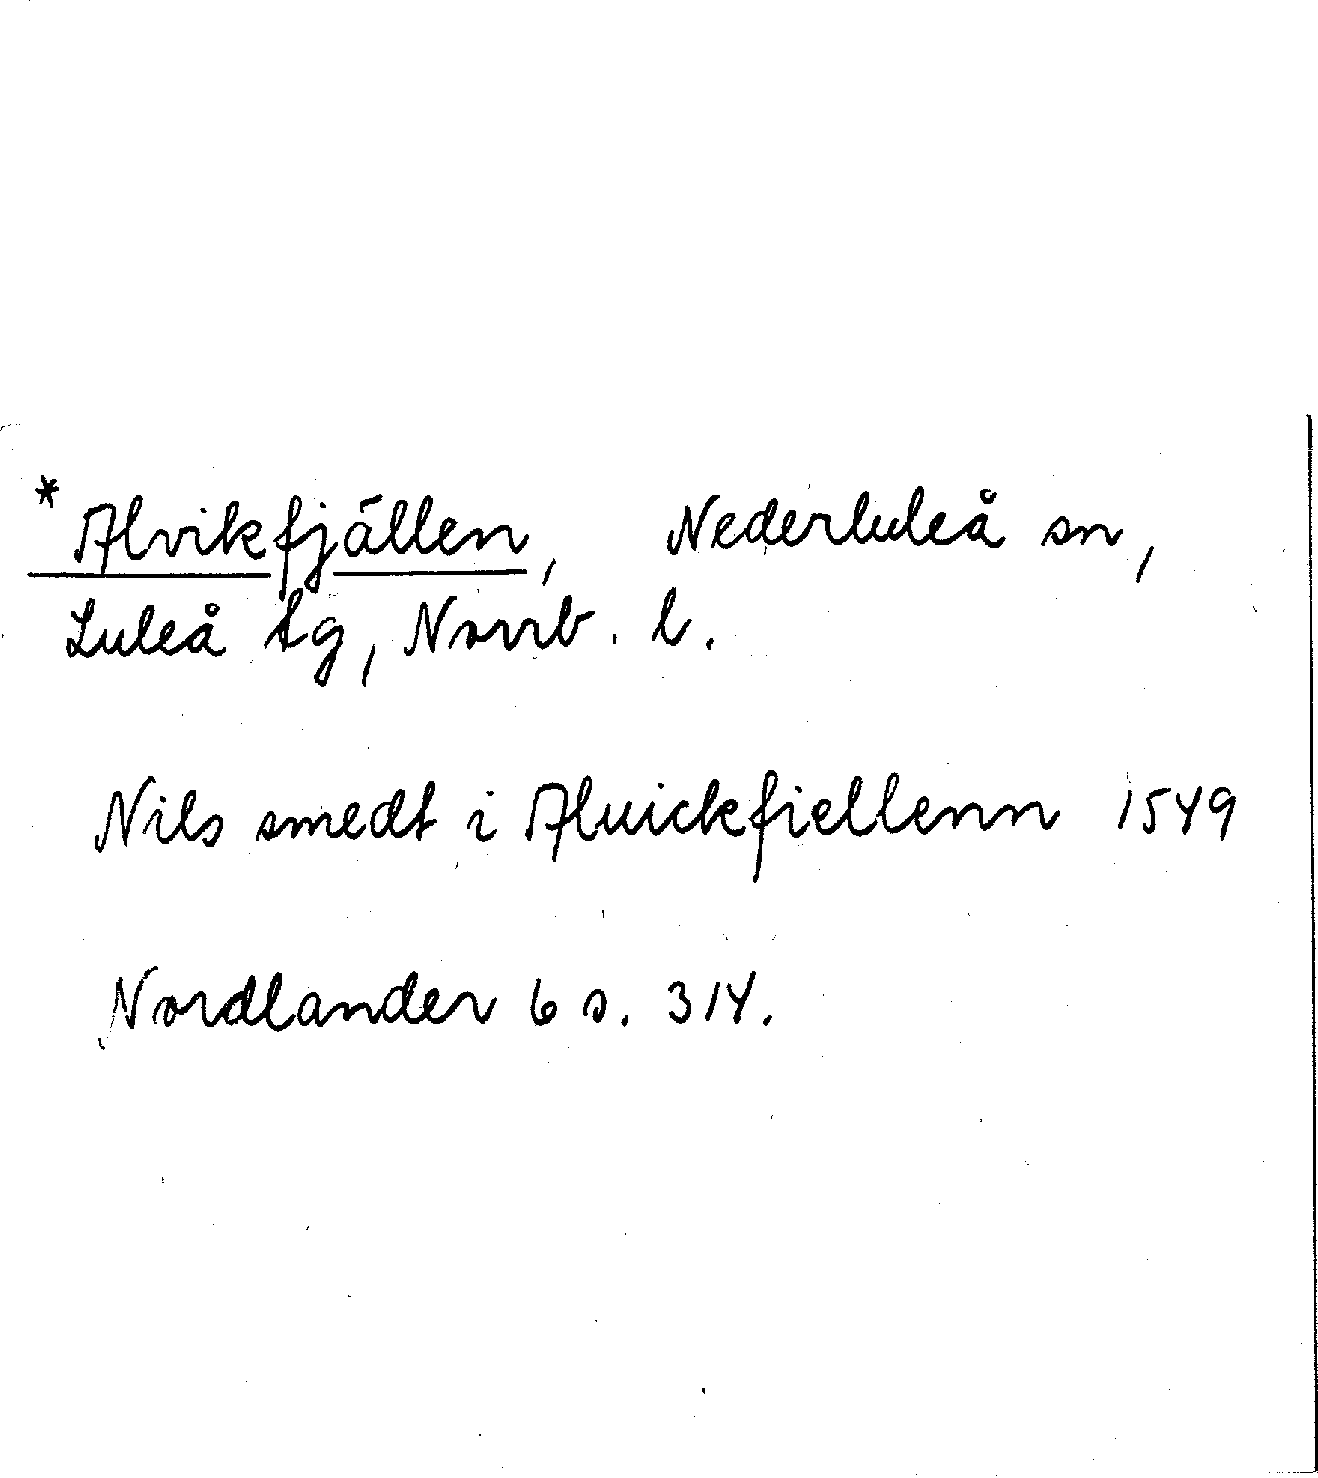 *Alvikfjällen, Nederluleå sn,
Luleå tg, Norrb. l.
Nils smedt i Aluickfiellenn 1549
Nordlander 6 s. 314.